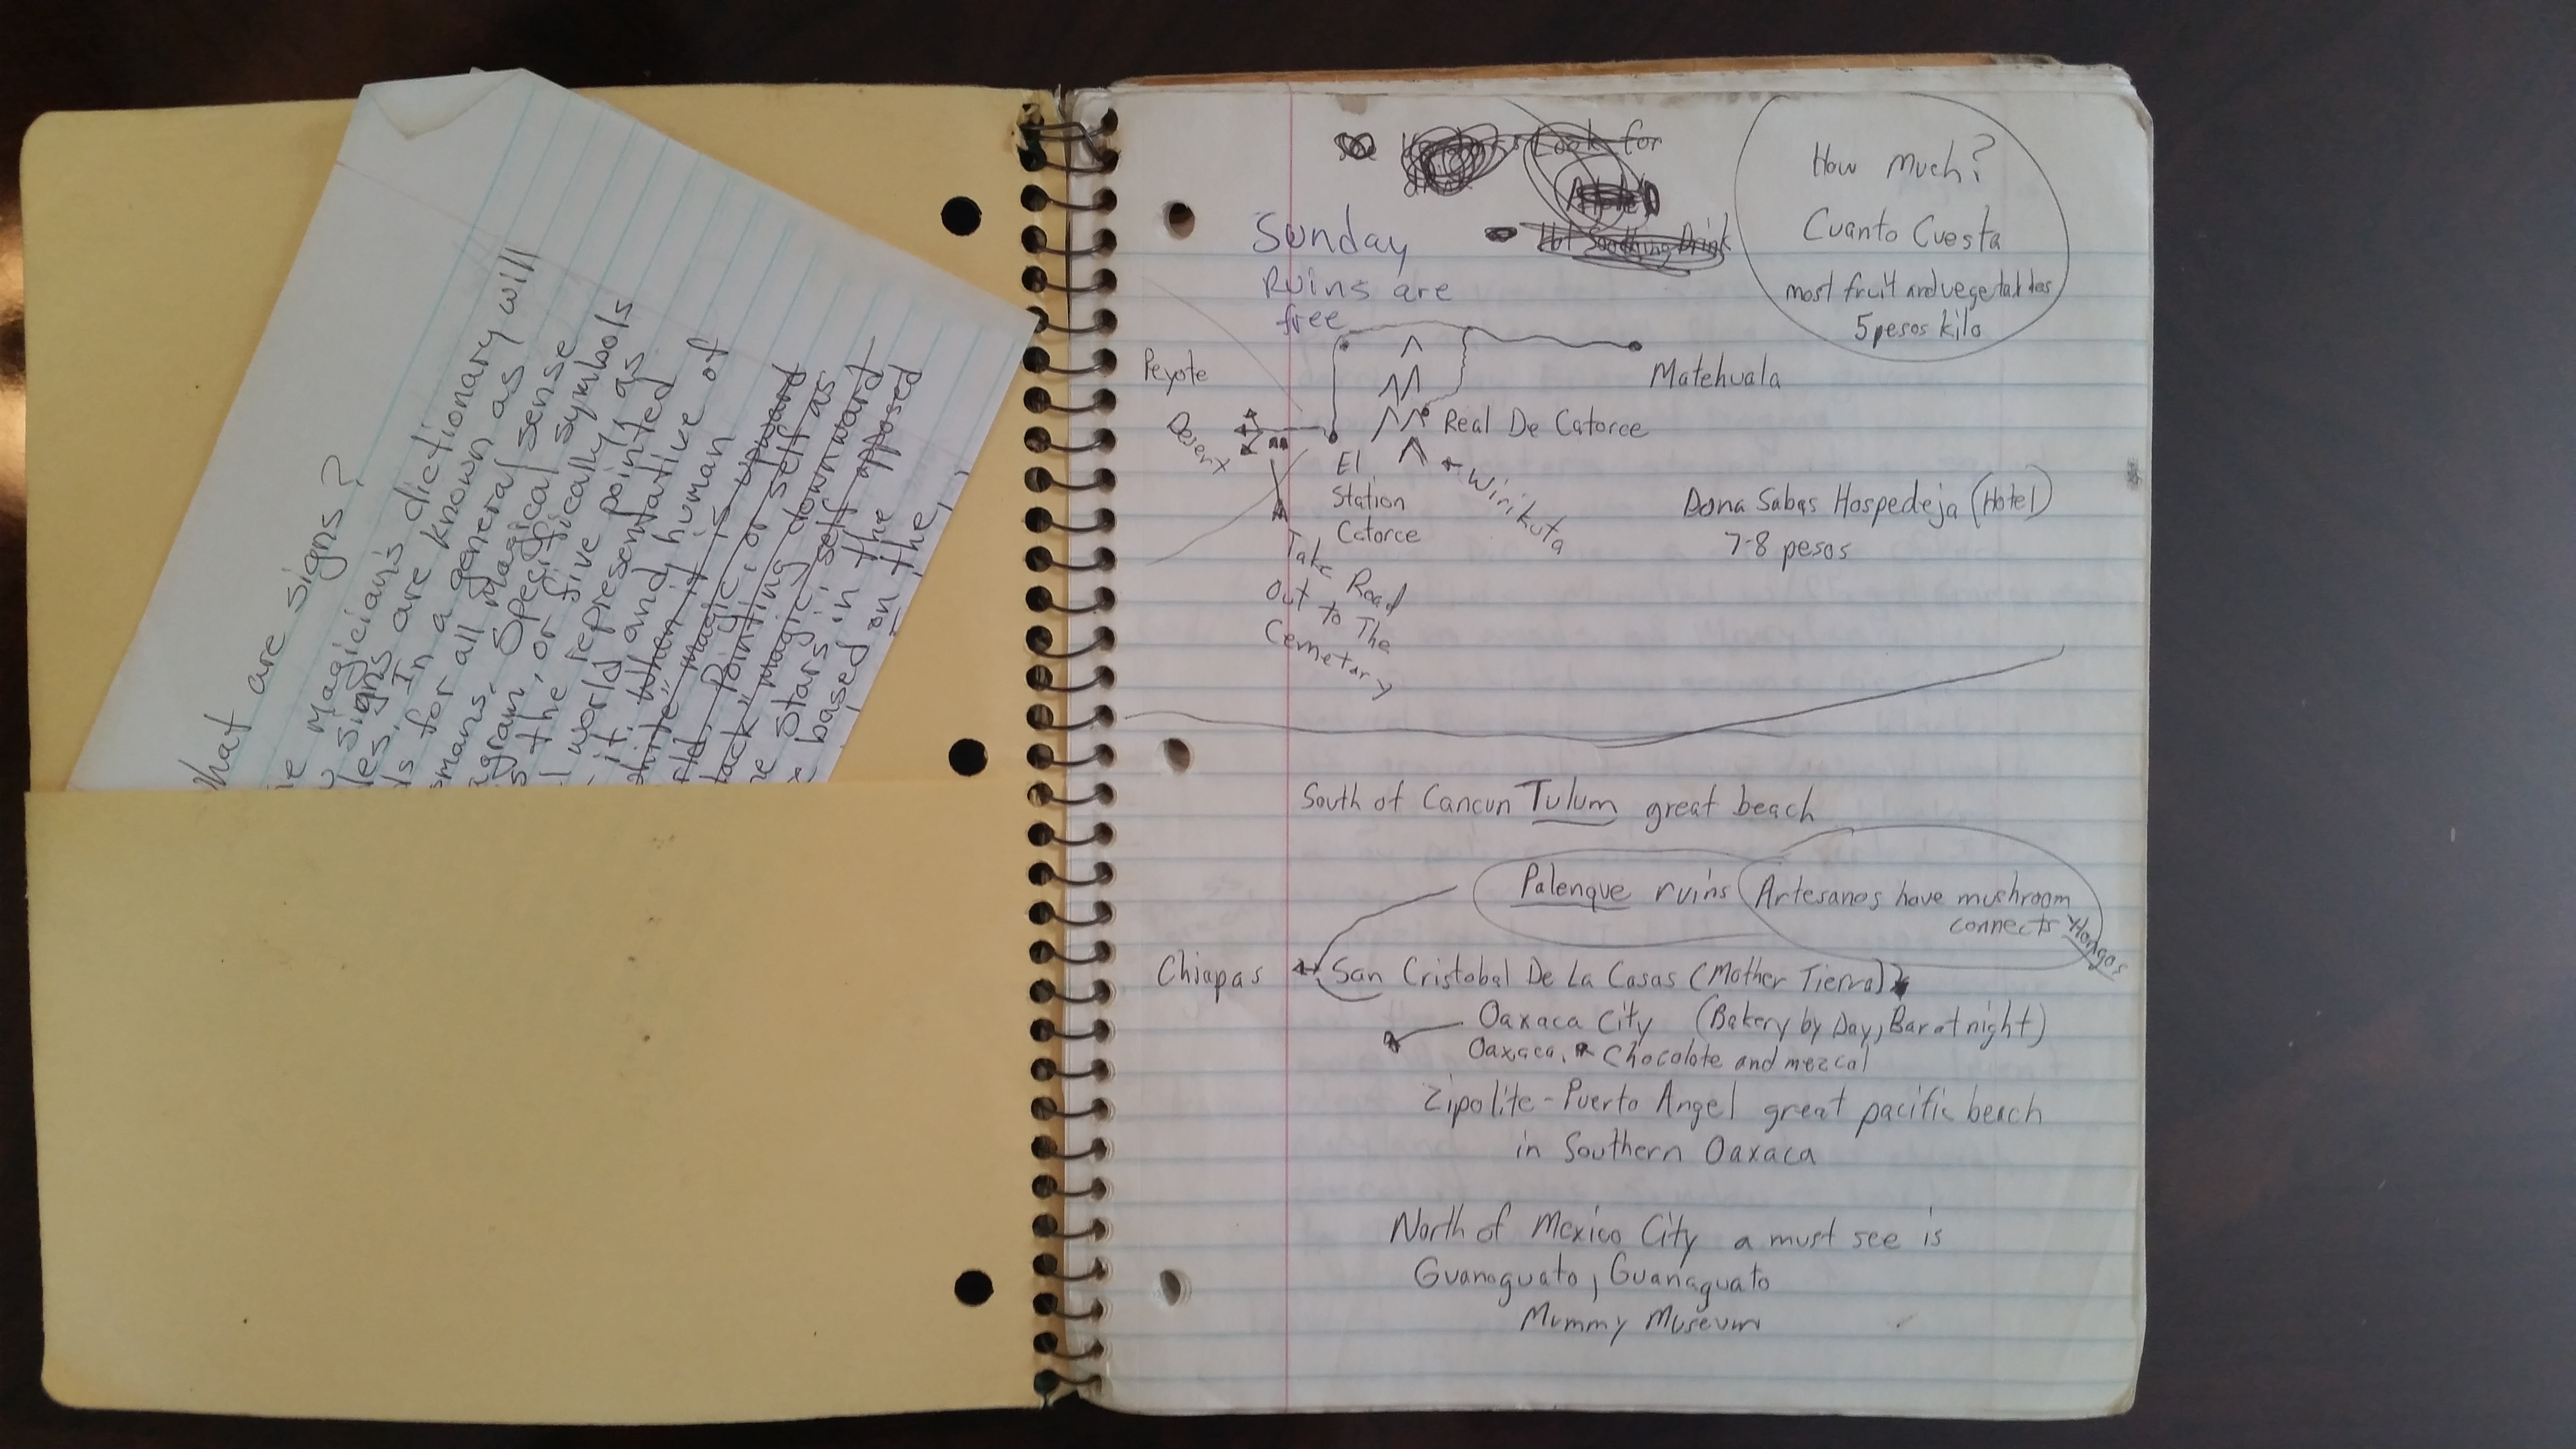 What are signs?
Magician's dictionary will
signs are known as
In a general sense
for all magical symbols
Specifically, as
or five pointed
the representative of
world and human
it. When it is upward
"white" magic, or self as
Pointing downward
magic, self apposed
stars in the
based on the
Look for
Hot Soothing Drink
How Much?
Cuanto Cuesta
most fruit and vegetables
5 pesos kilo
Sunday
Ruins are
free
Peyote
Matehuala
Desert
Real De Catorce
El
Station
Catorce
Wirikuta
Take Road
Out to The
Cemetary
Dona Sabas Hospedeja (Hotel)
7-8 pesos
South of Cancun Tulum great beach
Palenque ruins
Artesanos have mushroom
connects
Hongos
Chiapas San Cristobal De La Casas (Mother Tierra)
Oaxaca City (Bakery by Day, Bar at night)
Oaxaca. Chocolate and mezcal
Zipolite-Puerto Angel great pacific beach
in Southern Oaxaca
North of Mexico City a must see is
Guanaguato, Guanaguato
Mummy Museum